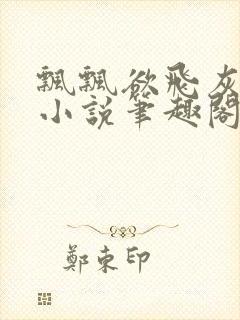 飄飄欲飛灰
小說筆趣閣
鄭東印